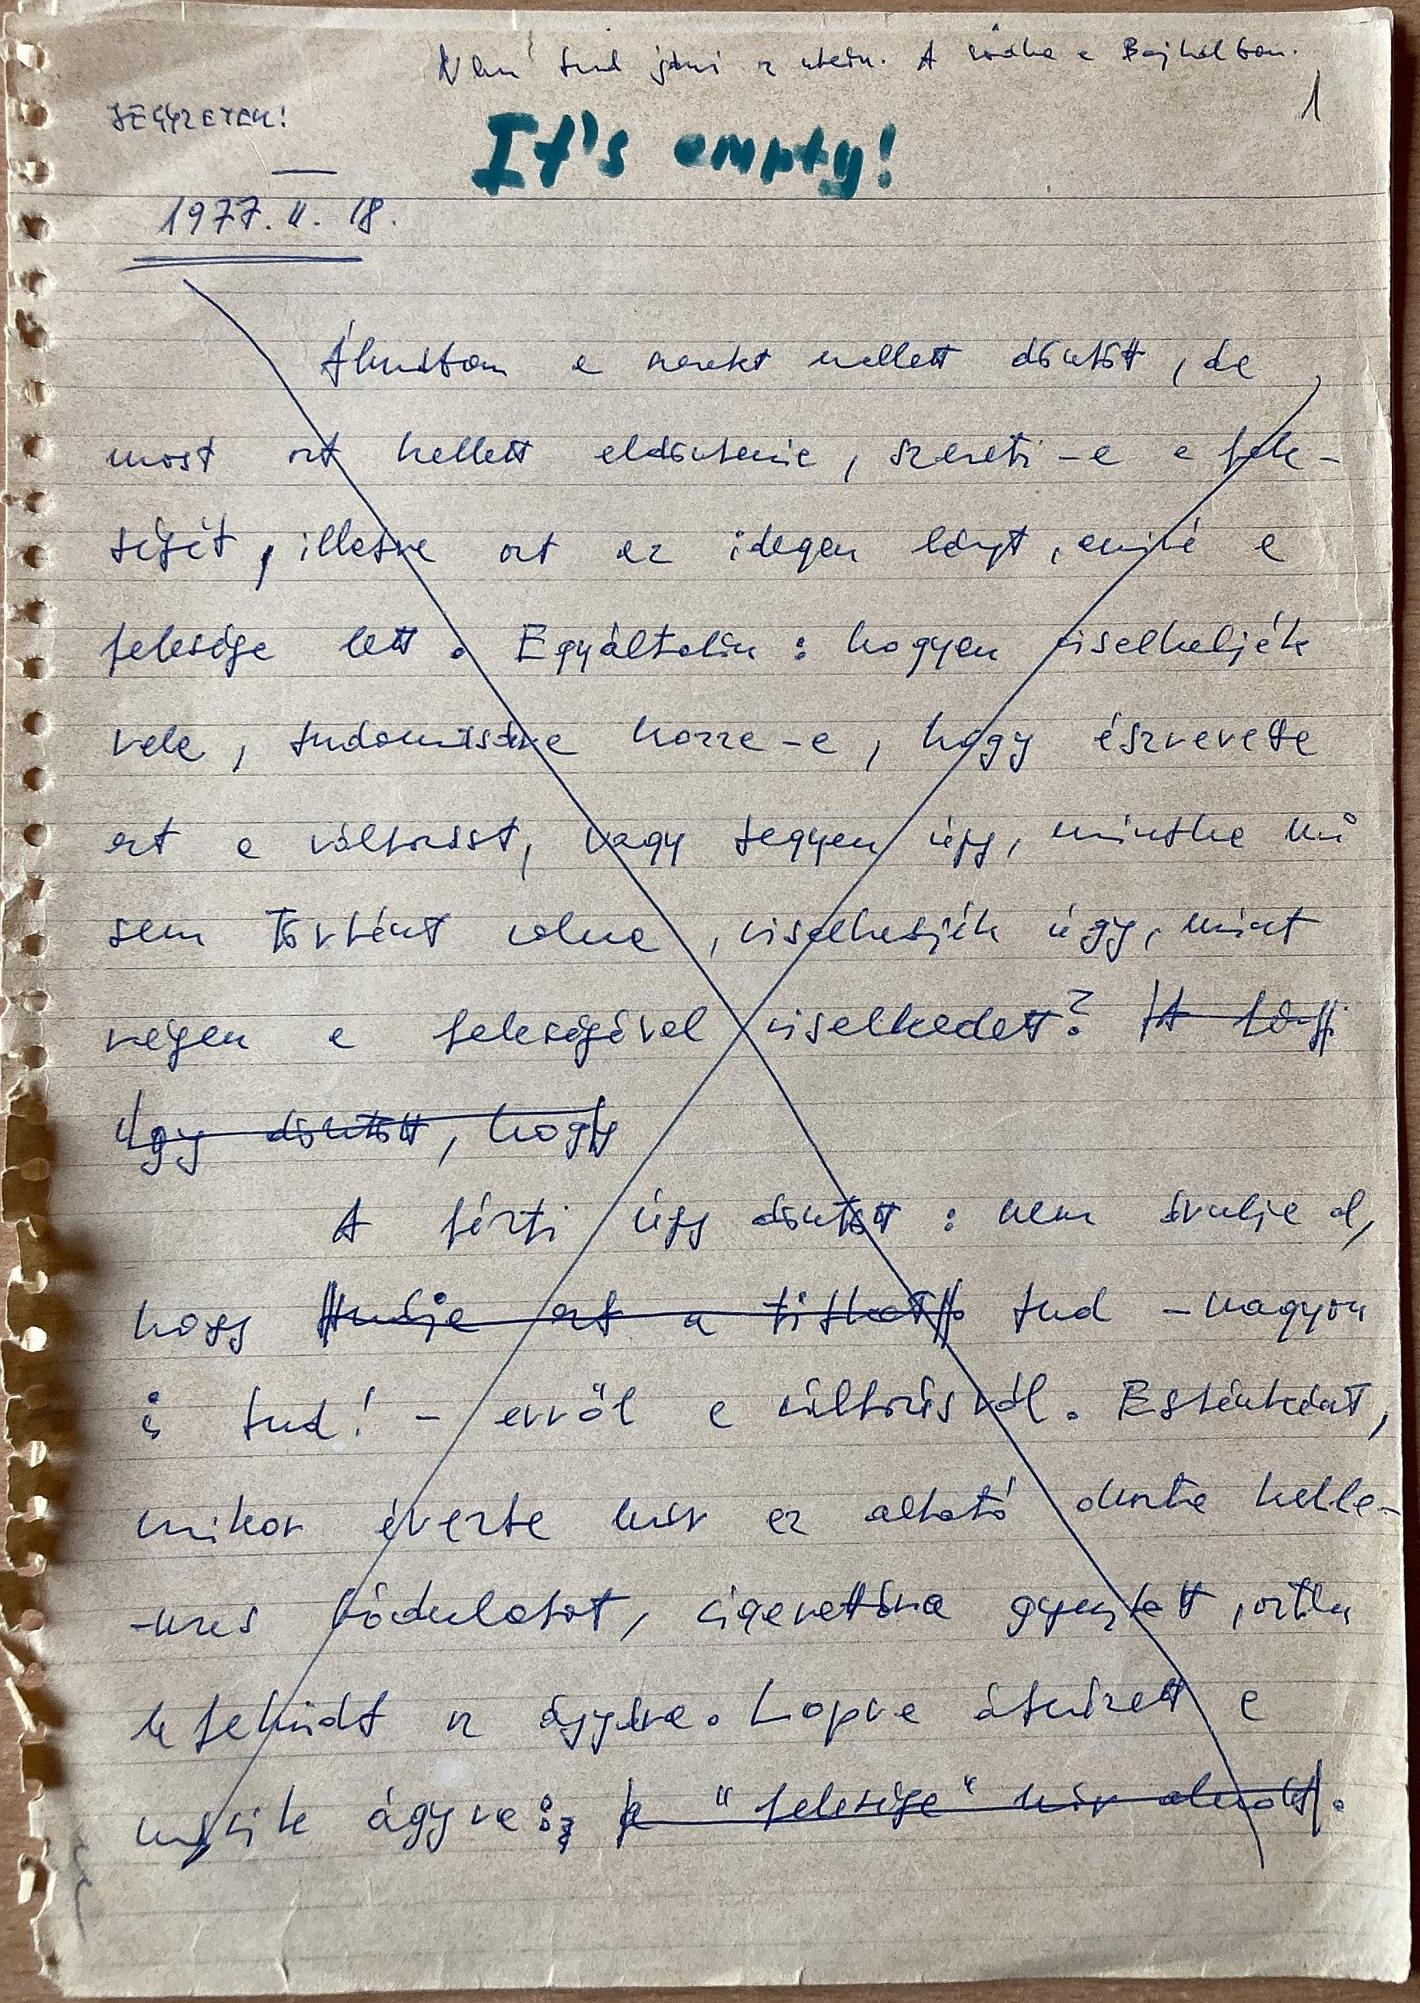 Nem tud járni az utcán. A
1
JEGYZETEK!
It's empty!
1977. II. 18.
Álmában a mellett döntött, de
most azt kellett eldöntenie, szereti-e a fele-
ségét, illetve azt az idegen lányt, amivé a
felesége lett. Egyáltalán: hogyan viselkedjék
vele, tudomására hozza-e, hogy észrevette
ezt a változást, vagy tegyen úgy, mintha mi
sem történt volna, viselkedjék úgy, mint
régen a feleségével viselkedett? A férfi
úgy döntött, hogy
A férfi úgy döntött: nem árulja el,
hogy tudja ezt a titkot tud – nagyon
is tud! – erről a változásról. Esténként,
mikor érezte már az altató okozta kelle-
mes bódulatot, cigarettára gyújtott, aztán
lefeküdt az ágyra. Lopva átnézett a
másik ágyra: a "felesége" már aludt.